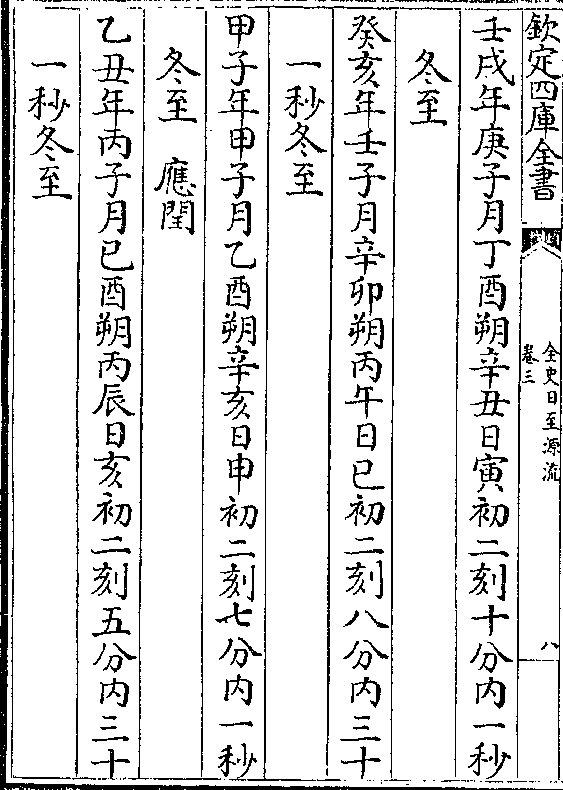 欽定四庫全書
全史日至源流
卷三
八
壬戌年庚子月丁酉朔辛丑日寅初二刻十分内一秒
冬至
癸亥年壬子月辛卯朔丙午日巳初二刻八分内三十
一秒冬至
甲子年甲子月乙酉朔辛亥日申初二刻七分内一秒
冬至 應閏
乙丑年丙子月己酉朔丙辰日亥初二刻五分内三十
一秒冬至